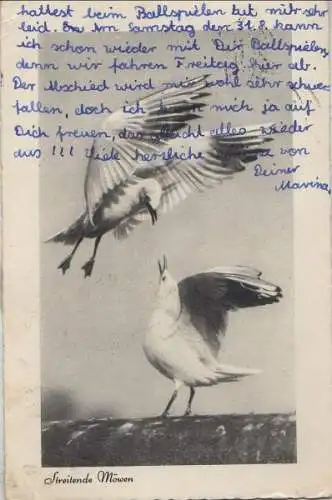 hattest beim Ballspielen tut mir sehr
leid. Am Samstag der 31.8. kann
ich schon wieder mit Dir Ballspielen,
denn wir fahren Freitag hier ab.
Der Abschied wird mir wohl sehr schwer
fallen, doch ich kann mich ja auf
Dich freuen, das gleicht alles wieder
aus !!! Viele herzliche von
Deiner
Marina
Streitende Möwen